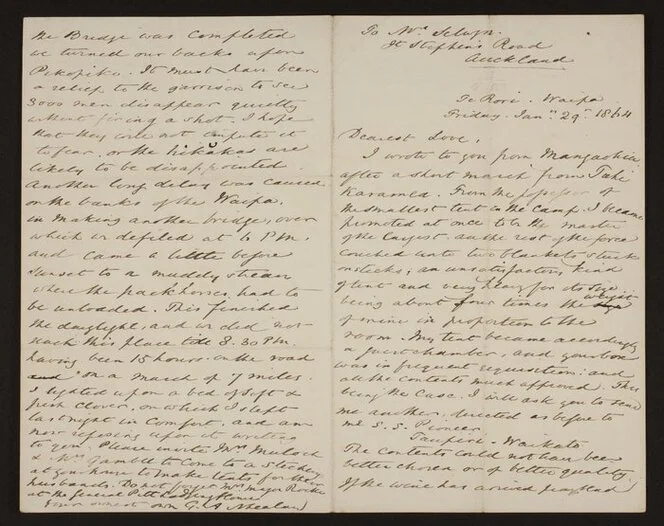 To Mrs Selwyn.
St Stephen's Road
Auckland
Te Rori. Waipa
Friday. Jany 29. 1864
Dearest love,
I wrote to you from Mangaohia
after a short march from Tuhi
Karamea. From the possessor of
the smallest tent in the Camp, I became
promoted at once to be the master
of the largest. as the rest of the force
crowded into two blankets stuck
on sticks; an unsatisfactory kind
of tent and very heavy for its size
being about four times the weight
of mine in proportion to the
room. My tent became accordingly
a guest chamber, and your box
was in frequent requisition: and
all the contents much approved. This
being the case, I will ask you to send
me another. directed as before to
me S.S. Pioneer
Taupiri. Waikato
The contents could not have been
better chosen or of better quality.
If the wine has arrived pray send
the Bridge was completed
we turned our backs upon
Pikopiko. It must have been
a relief to the garrison to see
3000 men disappear quietly
without firing a shot. I hope
that they will not impute it
to fear, or the are
likely to be disappointed.
Another long delay was caused
on the banks of the Waipa,
in making another bridge, over
which we defiled at 6 P.M.
and came a little before
sunset to a muddy stream
where the packhorses had to
be unloaded. This finished
the daylight, and we did not
reach this place till 8.30 P.M.
having been 15 hours on the road
on a march of 7 miles.
I lighted upon a bed of soft &
fresh clover, on which I slept
last night in comfort, and am
now reposing upon it writing
to you. Please invite Mrs
& Mrs to come to a
at your house to make tents for their
husbands. Do not forget Mrs Major Rocke
at the
Your ownest own G. A. N Zealand